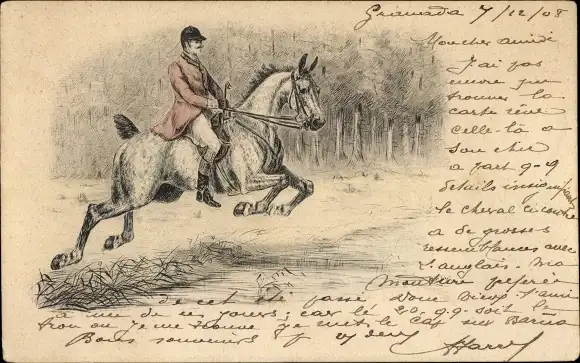 Granada 7/12/08
Mon cher ami
J'ai pas
encore pu
trouver la
carte rêvé
celle-là a
son chic
a part q-q
détails insignifiants
le cheval ci contre
a de grosses
ressemblances avec
l'anglais. ma
monture préférée
de cet été passé donc vieux l'ami
a un de ces jours; car le 20 q-q soit le
trou ou je me trouve je met le cap sur
Bons souvenirs